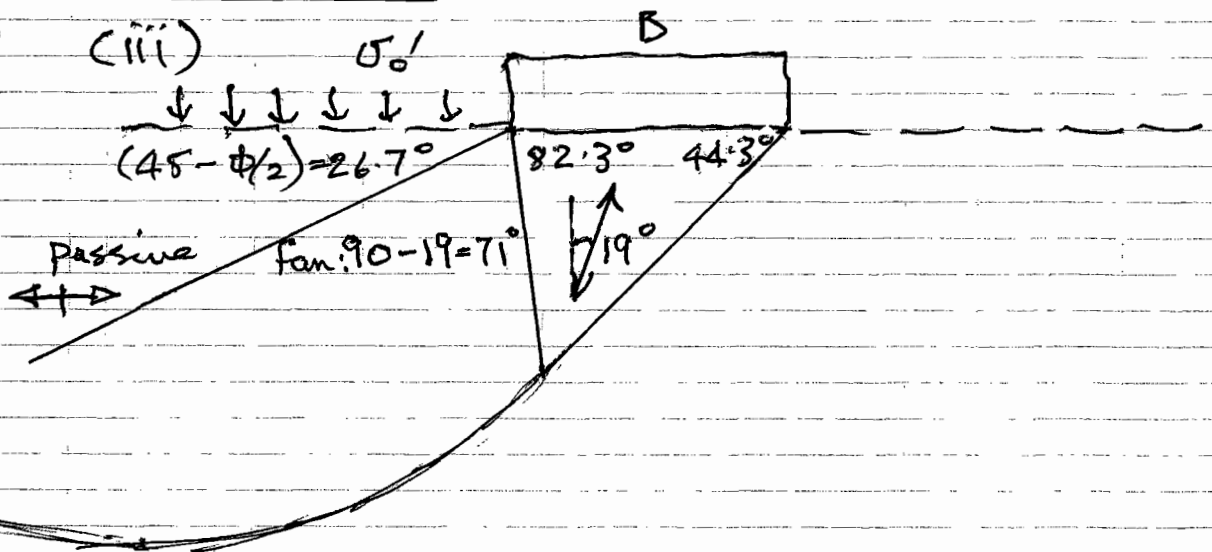 (iii) σ₀′ B
(45-Φ/2)=26.7° 82.3° 44.3°
passive fan:90-19=71° 19°